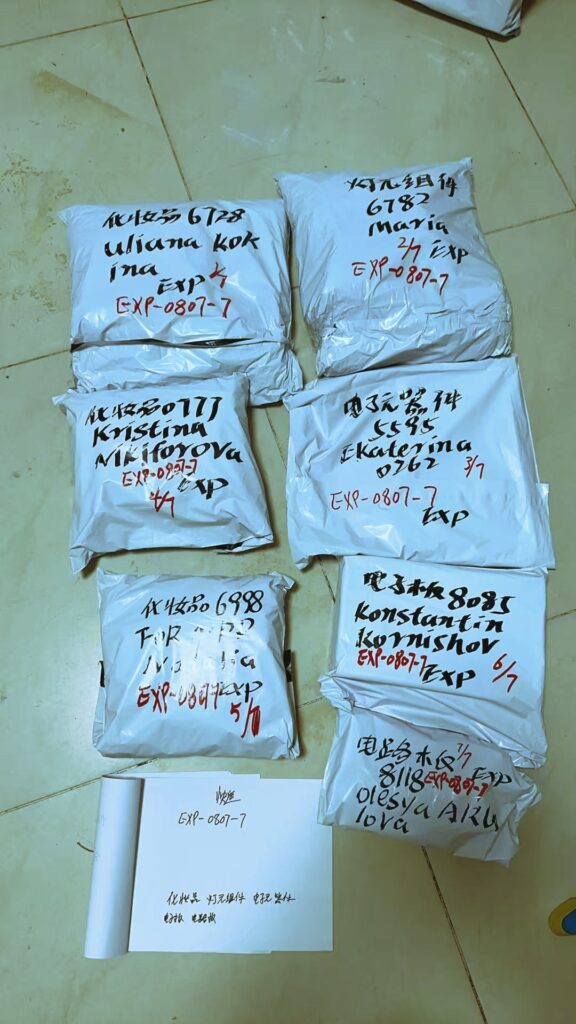 化妆品6728
uliana kok
ina
EXP 1/7
EXP-0807-7
灯元组件
6782
maria
2/7 EXP
EXP-0807-7
化妆品0777
Kristina
Nikiforova
EXP-0807-7
4/7 EXP
电子元器件
5595
Ekaterina
0262 3/7
EXP-0807-7
EXP
化妆品6998
FOR
EXP-0807-7 EXP
5/7
电子板8085
Konstantin
Kornishov
EXP-0807-7 6/7
EXP
电路板 7/7
8118 EXP-0807-7 EXP
olesya
lova
EXP-0807-7
化妆品 灯元组件 电子元器件
电子板 电路板